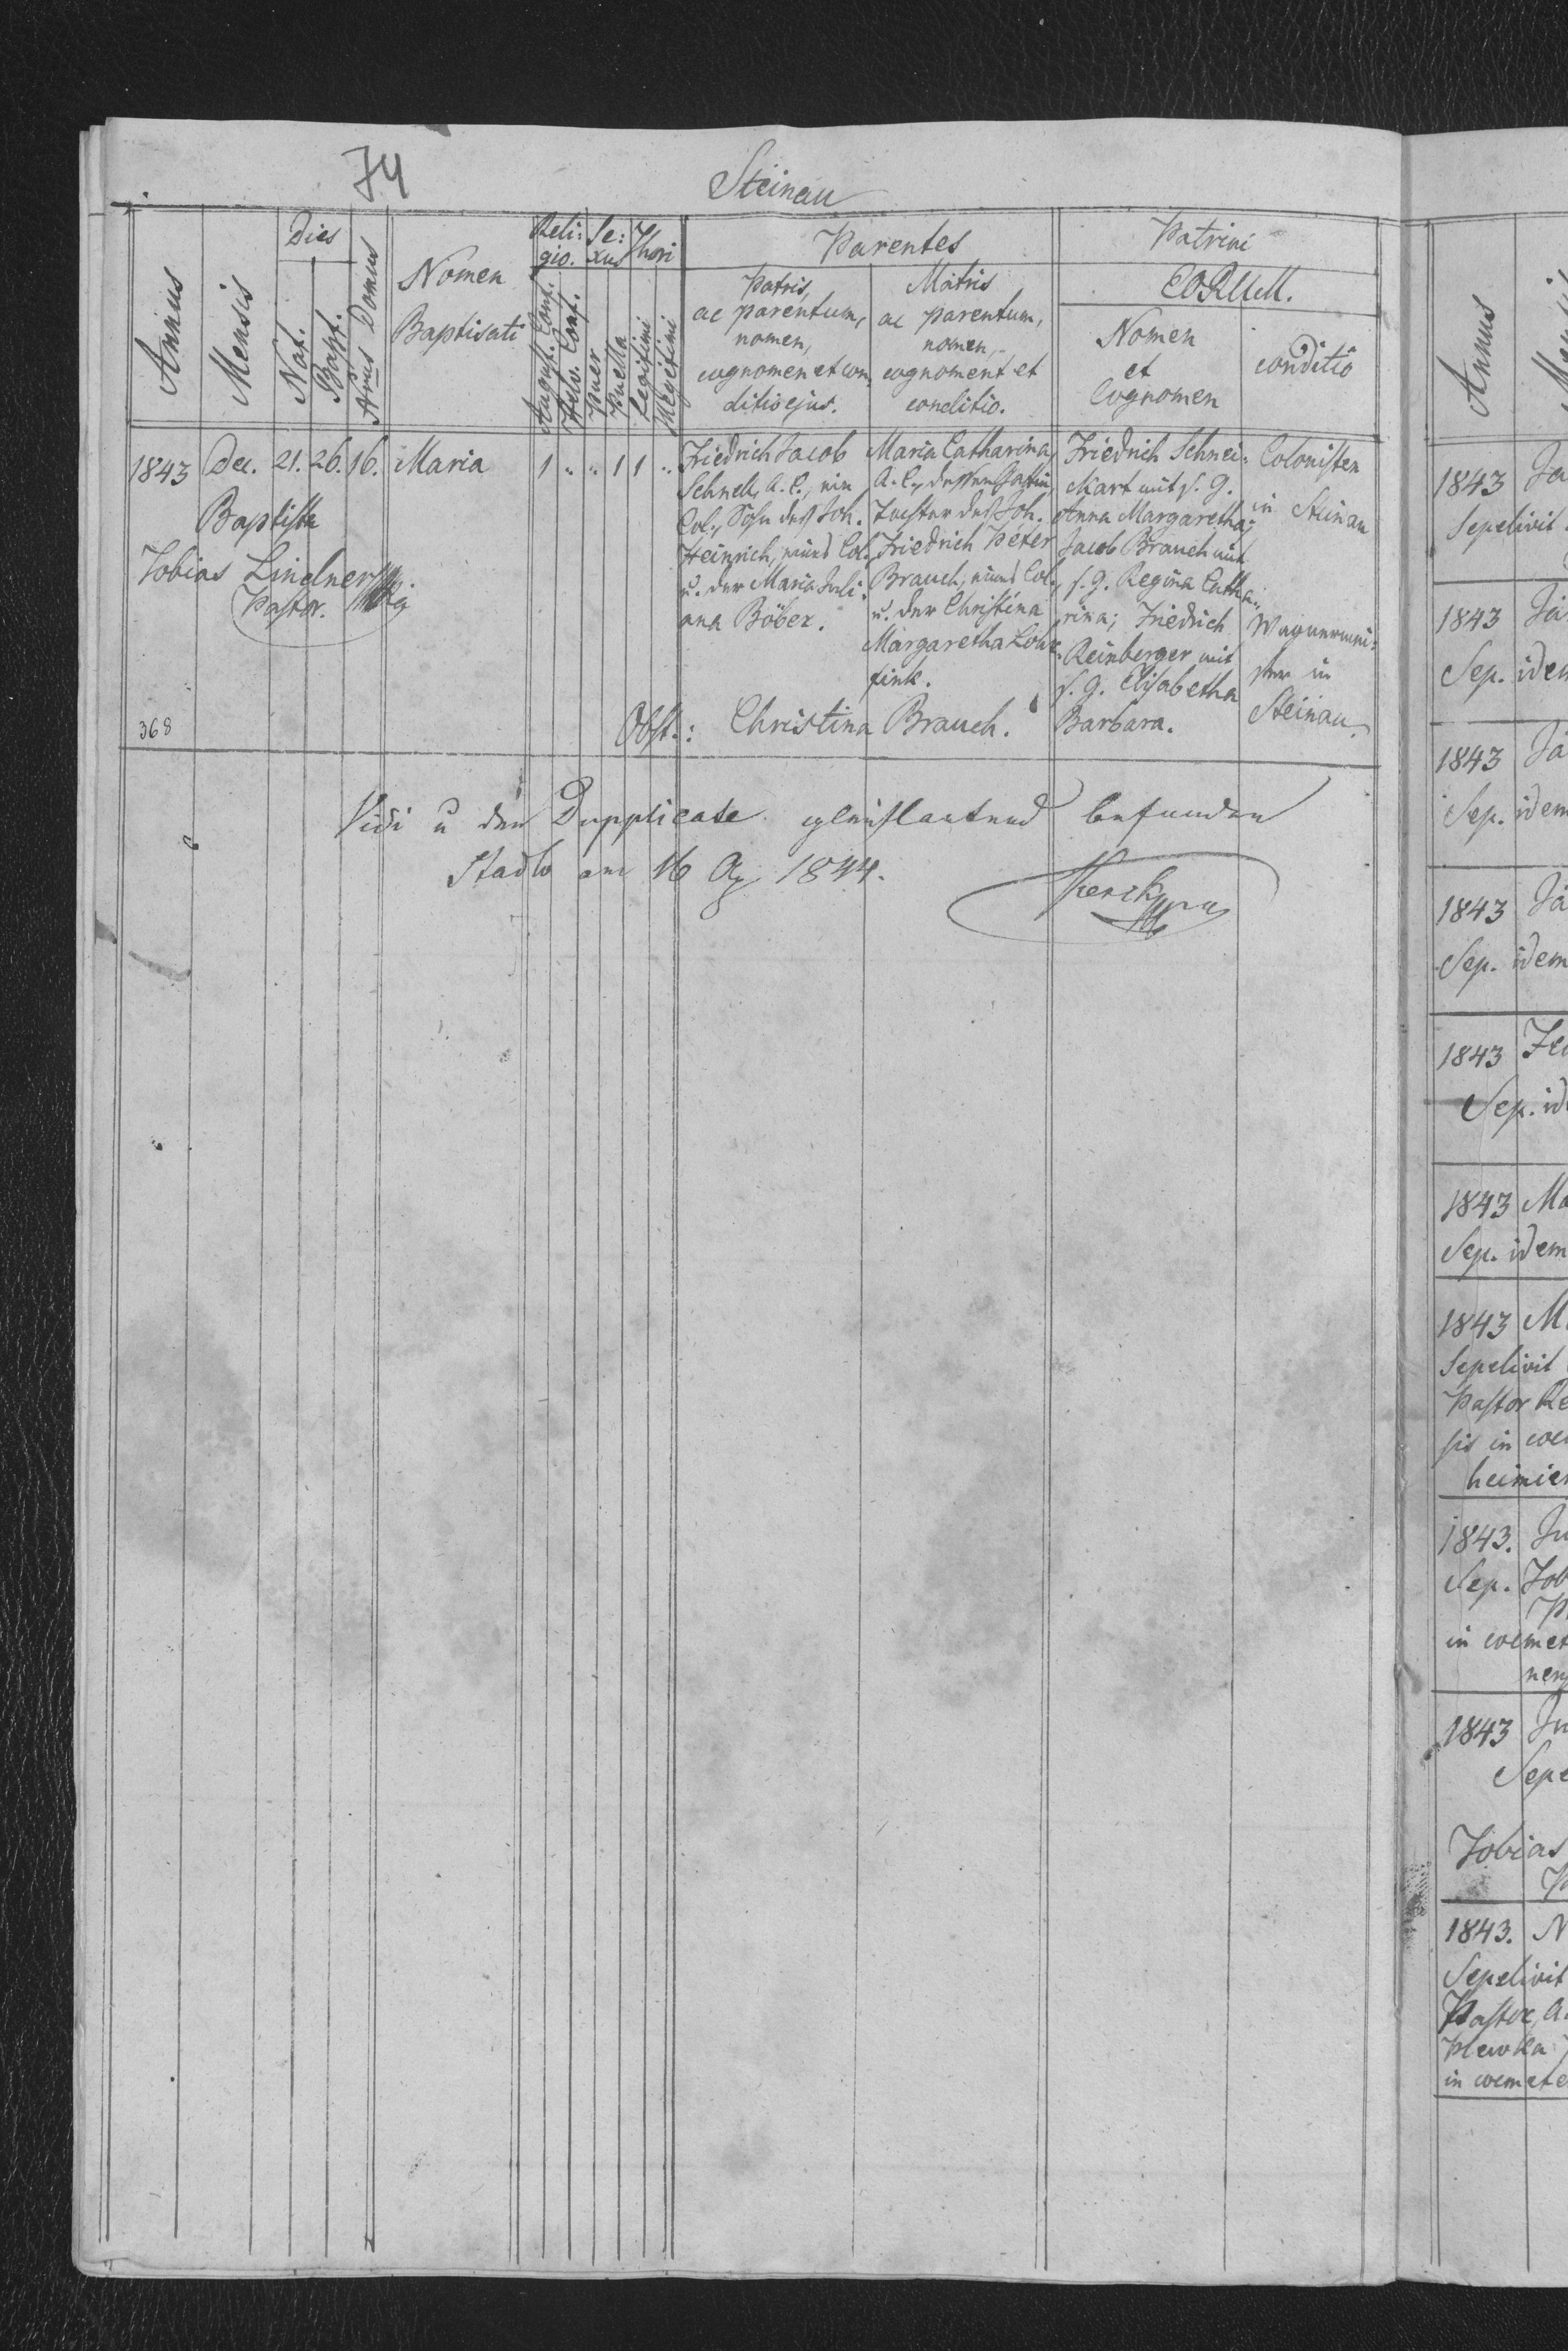 74
Steinau
Annus
Mensis
Dies
Nat.
Bapt.
Nrus Domus
Nomen
Baptisati
Reli:
gio.
August. Conf.
Helv. Conf.
Se:
xus
Puer
Puella
Thori
Legitimi
Illegitimi
Parentes
Patris,
ac parentum,
nomen,
cognomen et con,
ditio ejus.
Matris
ac parentum,
nomen,
cognoment et
conditio.
Patrini
EORUM.
Nomen
et
Cognomen
conditio
1843 Dec. 21. 26. 16. Maria 1 " " 1 1 "
Baptista
Tobias Lindner
Pastor.
Friedrich Jacob
Schnell, A. C., ein
Col., Sohn des Joh.
Heinrich, eines Col.
u. der Maria Juli:
ana Böber.
Maria Catharina,
A. C., dessen Gattin,
Tochter des Joh.
Friedrich Peter
Brauch, eines Col.,
u. der Christina
Margaretha Lon=
fink.
Friedrich Schnei:
kart mit s. g.
Anna Margaretha;
Jacob Brauch mit
s. g. Regina Catha:
rina; Friedrich
Reinberger mit
s. g. Elisabetha
Barbara.
Colonisten
in Steinau
Wagnermei:
ster in
Steinau.
368
Obst.: Christina Brauch.
Vidi u den Dupplicate gleichlautend befunden
Stadlo am 16 Ag 1844.
Annus
1843 Ja
Sepelivit
1843 Ja
Sep. idem
1843 Ja
Sep. idem
1843 Ja
Sep. idem
1843 Fe
Sep. id
1843 Ma
Sep. idem
1843 M
Sepelivit
Pastor Re
sis in coe
heimien
1843. Ju
Sep. Tob
P
in coemet
nen
1843 Ju
Sepe
Tobias
P
1843. N
Sepelivit
Pastor, A.
in coemete